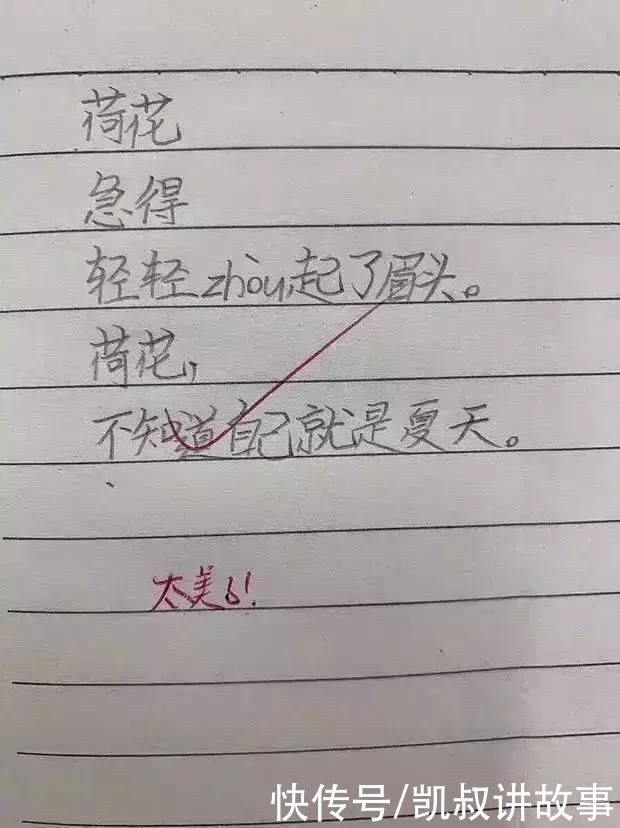 荷花
急得
轻轻zhòu起了眉头。
荷花,
不知道自己就是夏天。
太美了!
快传号/凯叔讲故事